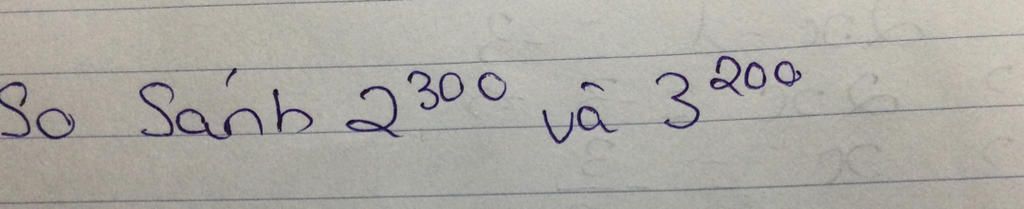 So Sánh 2^300 và 3^200